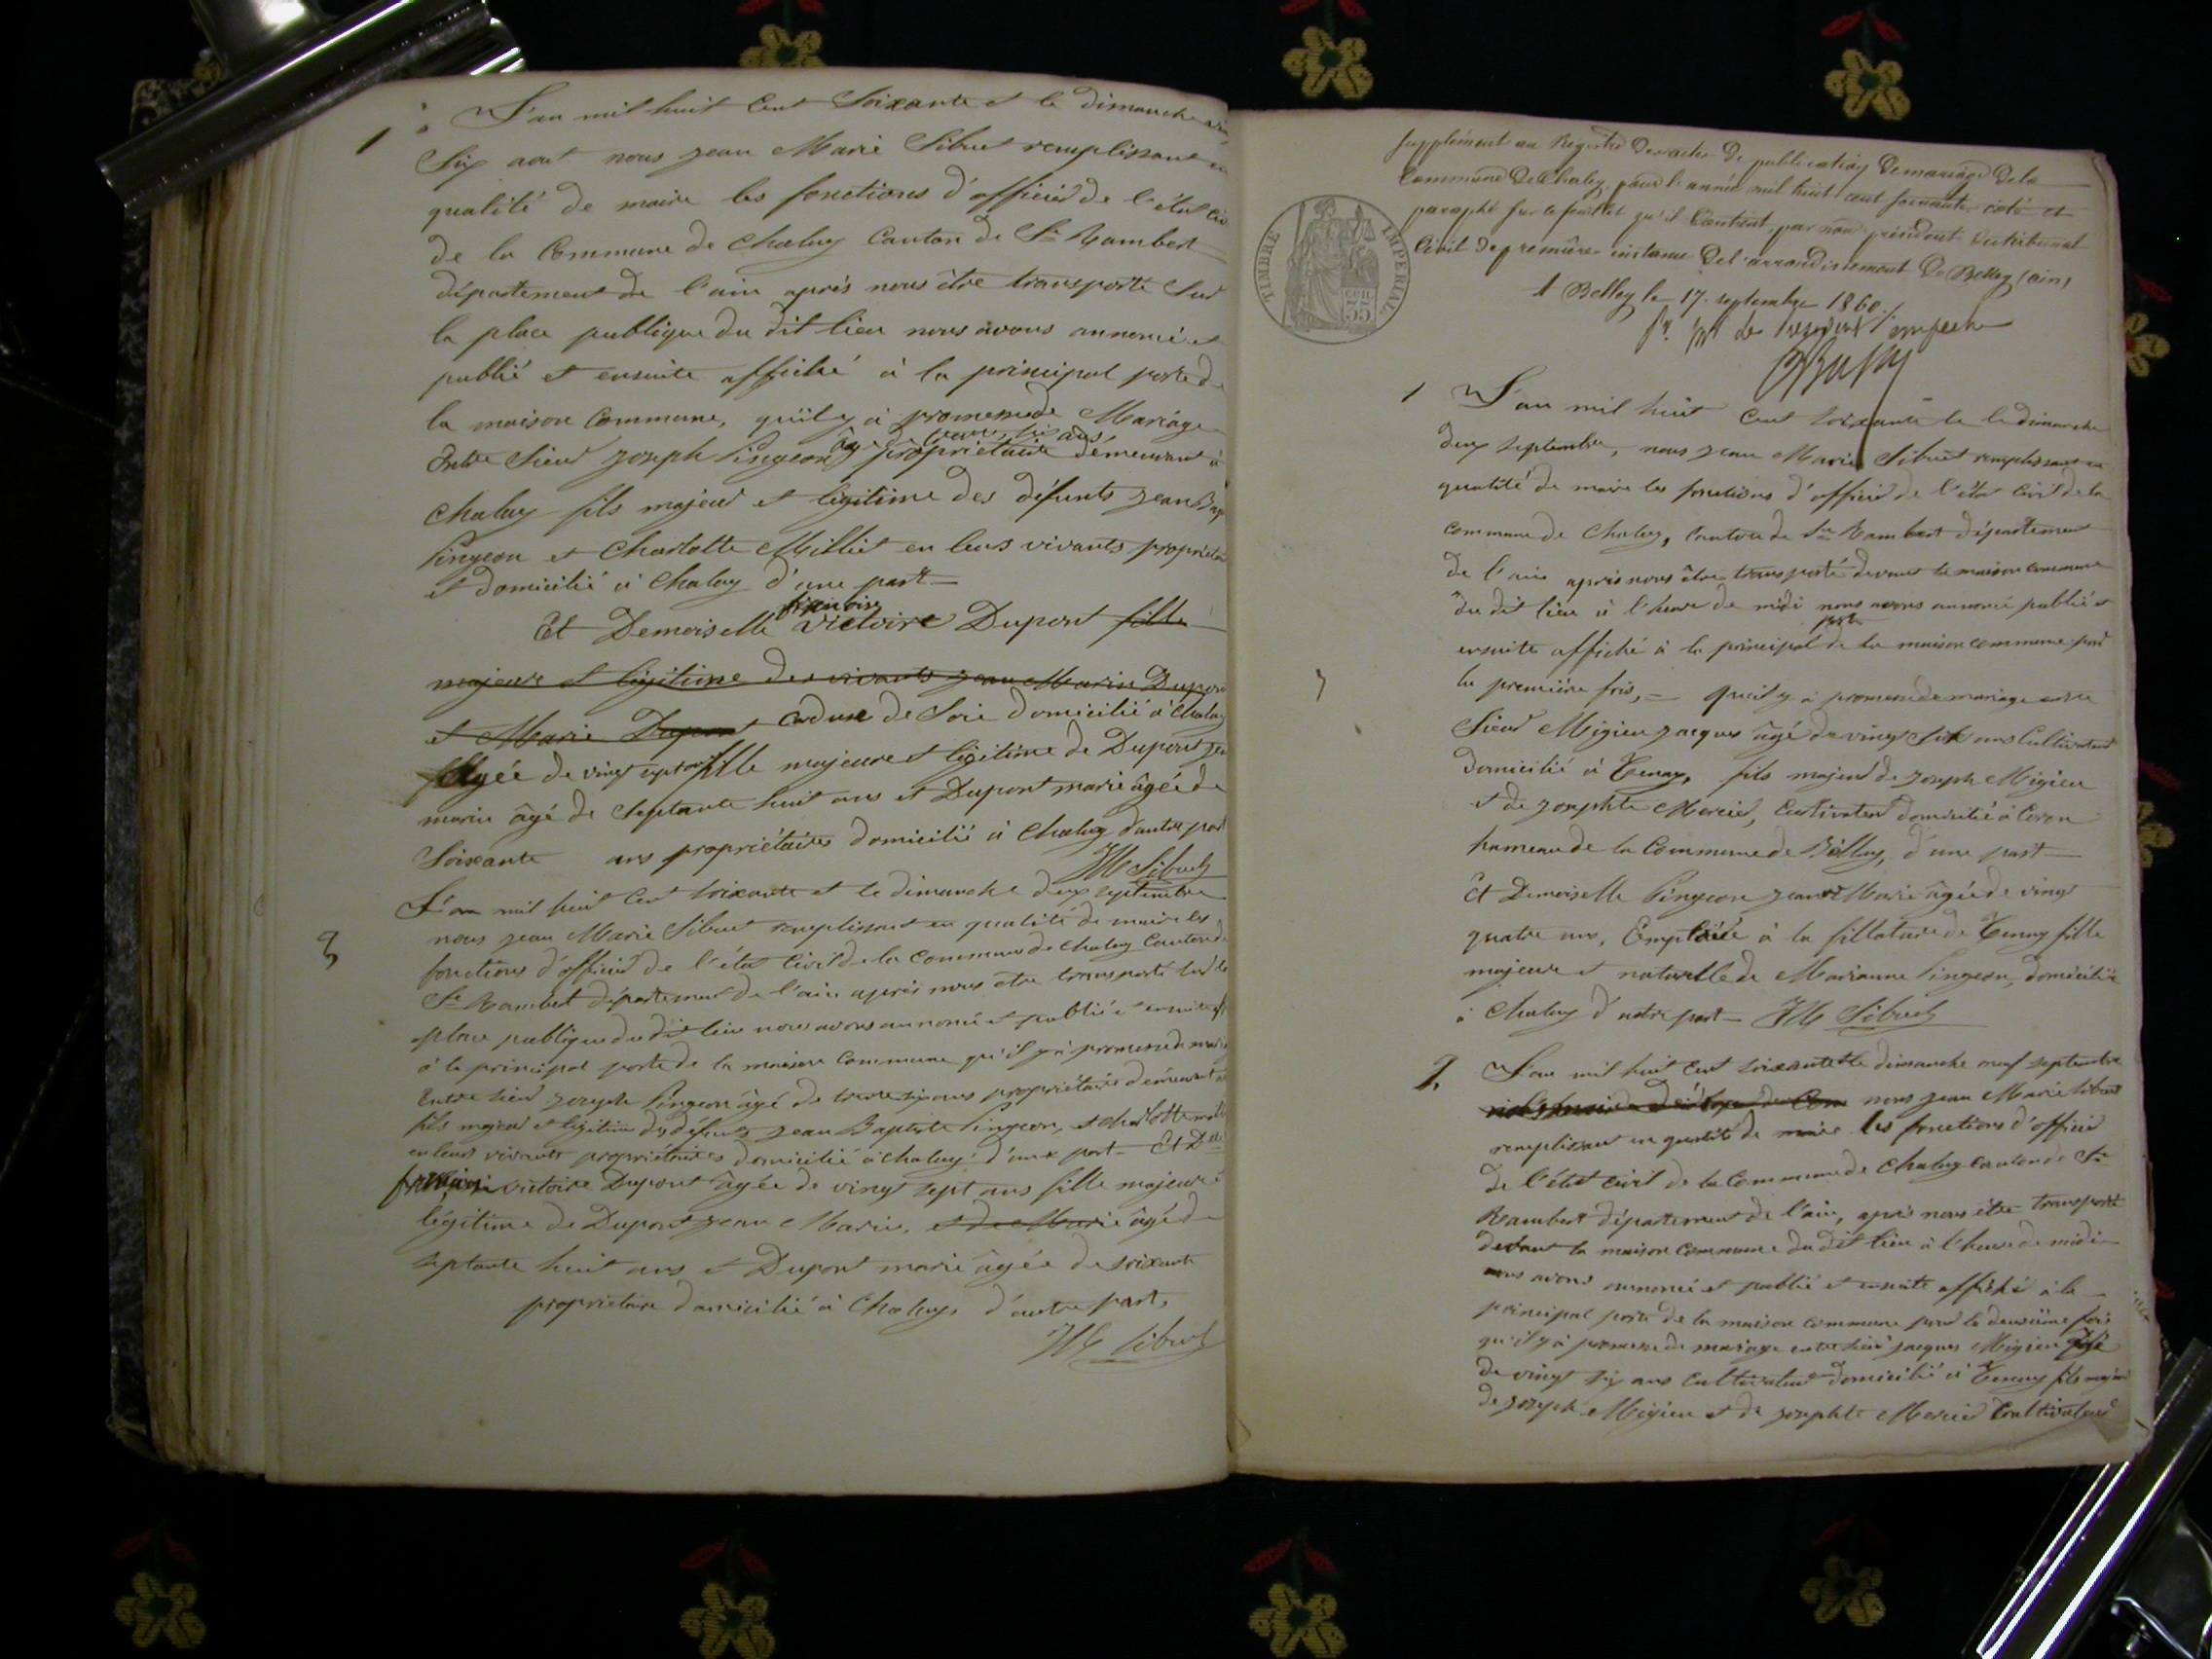 1
L'an mil huit Cent Soixante et le dimanche
Six aout nous jean Marie Sibuet remplissant en
qualité de maire les fonctions d'officier de l'état civ
de la Commune de Chaley Canton de St Rambert
département de l'ain après nous être transporté Sur
la place publique du dit lieu nous avons annoncé et
publié et ensuite affiché à la principal porte de
la maison Commune, qu'il y à promesse de Mariage
âgé de trente six ans
Entre Sieur joseph Pingeon propriétaire démeurant à
Chaley fils majeur et légitime des défunts jean Bap
Pingeon et Charlotte Milliet en leurs vivants propriétai
et domicilié à Chaley d'une part
françoise
Et Demoiselle victoire Dupont fille
majeure et légitime des vivants jean Marie Dupon
et Marie Dupont Cardeuse de Soie domicilié à Chaley
Agée de vingt sept ans fille majeure et légitime de Dupont jean
marie âgé de Septante huit ans et Dupont marie âgée de
Soixante ans propriétaires domicilié à Chaley d'autre part
JM Sibuet
3
L'an mil huit Cent soixante et le dimanche deux septembre
nous jean Marie Sibuet remplissant en qualité de maire les
fonctions d'officier de l'état Civil de la Commune de Chaley Canton de
St Rambert département de l'ain après nous être transporté sur la
place publique du dit lieu nous avons annoncé et publié et ensuite aff
à la principal porte de la maison Commune qu'il y à promesse de mari
Entre sieur joseph Pingeon âgé de trente six ans propriétaire démeurant à
fils majeur et légitime des défunts jean Baptiste Pingeon, et charlotte mill
en leurs vivants propriétaires domicilié à Chaley d'une part - Et Dlle
françoise victoire Dupont âgée de vingt sept ans fille majeure
légitime de Dupont jean Marie, et de Marie âgé de
septante huit ans et Dupont marie âgée de soixante
propriétaire domicilié à Chaley, d'autre part,
JM Sibuet
Supplément au Registre des actes de publication de mariage de la
Commune de Chaley, pour l'année mil huit cent soixante, coté et
paraphé sur le feuillet qu'il Contient, par nous président du tribunal
Civil de première instance de l'arrondissement de Belley (ain)
A Belley le 17 septembre 1860 ./.
TIMBRE IMPERIAL
35
1
L'an mil huit Cent soixante le le dimanche
deux septembre, nous jean Marie Sibuet remplissant en
qualité de maire les fonctions d'officier de l'état Civil de la
commune de Chaley, Canton de St Rambert département
de l'ain après nous être transporté devant la maison commune
du dit lieu à l'heure de midi nous avons annoncé publié et
porte
ensuite affiché à la principal de la maison commune pour
la première fois, = qu'il y à promesse de mariage entre
Sieur Migieu jacques âgé de vingt six ans Cultivateur
domicilié à Tenay, fils majeur de joseph Migieu
et de josephte Mercier, Cultivateur domicilié à
hameau de la Commune de d'une part
Et Demoiselle Pingeon jeanne Marie âgée de vingt
quatre ans, Employée à la fillature de Tenay fille
majeure et naturelle de Marianne Pingeon, domiciliée
à Chaley d'autre part - JM Sibuet
2,
L'an mil huit Cent soixante et le dimanche neuf septembre
nous jean Marie Sibuet
remplissant en qualité de maire les fonctions d'officier
de l'état civil de la Commune de Chaley Canton de St
Rambert département de l'ain, après nous être transporté
devant la maison commune du dit lieu à l'heure de midi
nous avons annoncé et publié et ensuite affiché à la
principal porte de la maison commune pour la deuxième fois
qu'il y à promesse de mariage entre sieur jacques Migieu âgé
de vingt six ans Cultivateur domicilié à Tenay fils majeur
de joseph Migieu et de josephte Mercier Cultivateur